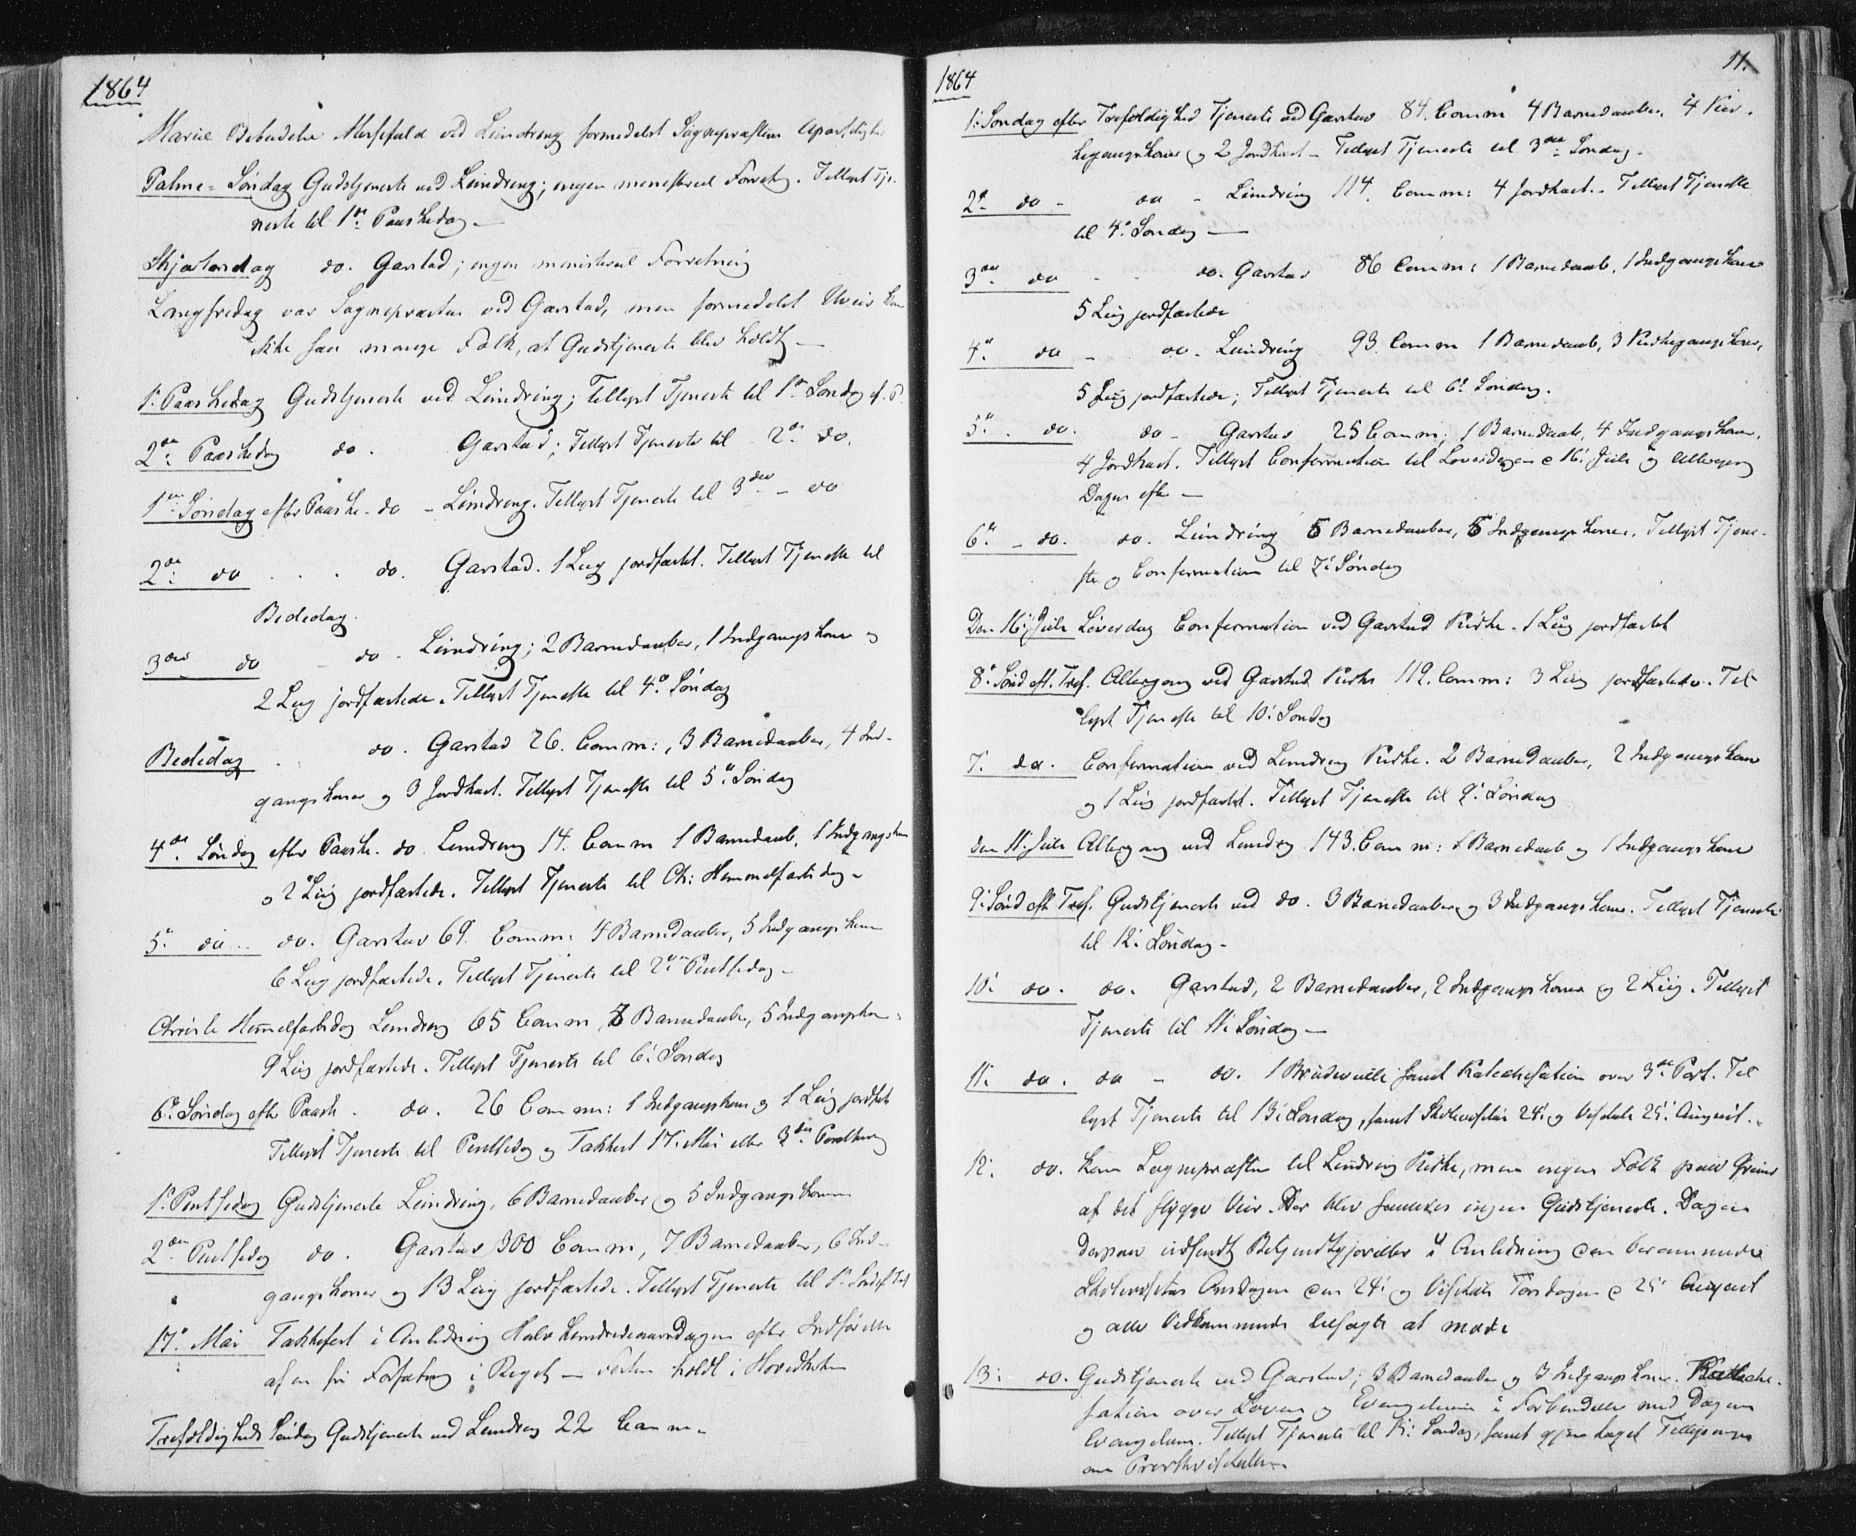 1864
Marie Bebudelse Messefald ved Leindring formedelst Sognepræstens
Palme-Søndag Gudstjeneste ved Leindring; ingen ministeriel Forretn. Tillyst Tje-
neste til 1ste Paaskedag –
Skjærtorsdag do. Garstad; ingen ministeriel Forretning
Langfredag var Sognepræsten ved Garstad, men formedelst Uveir kom
ikke saa mange Folk, at Gudstjeneste blev holdt –
1: Paaskedag Gudstjeneste ved Leindring; Tillyst Tjeneste til 1ste Søndag ef. P.
2den Paaskedag do. Garstad; Tillyst Tjeneste til 2den do.
1ste Søndag efter Paaske - do – Leindring. Tillyst Tjeneste til 3die – do
2den do . . . do. Garstad. 1 Liig jordfæstet. Tillyst Tjeneste til
Bededag.
3die do – do - Leindring; 2 Barnedaaber, 1 Indgangskone og
2 Liig jordfæstede. Tillyst Tjeneste til 4de Søndag
Bededag do. Garstad 26. Comm:, 3 Barnedaaber, 4 Ind-
gangskoner og 3 Jordkast. Tillyst Tjeneste til 5te Søndag
4de Søndag efter Paaske. do. Leindring 14. Comm 1 Barnedaab, 1 Indgangskone
og 2 Liig jordfæstede. Tillyst Tjeneste til Ch: Himmelfartsdag –
5te do .. do. Garstad 69. Comm: 4 Barnedaaber, 5 Indgangskoner
6 Liig jordfæstede. Tillyst Tjeneste til 2den Pintsedag –
Christi Himmelfartsdag Leindring 65 Comm, 8 Barnedaaber, 5 Indgangskon.
9 Liig jordfæstede. Tillyst Tjeneste til 6: Søndag
6te Søndag efter Paaske . do. 26 Comm: 1 Indgangskone og 1 Liig jordfæstet
Tillyst Tjeneste til Pintsedag og Takkefest 17. Mai eller 3die Pintsedag
1: Pintsedag Gudstjeneste Leindring, 6 Barnedaaber og 5 Indgangskoner
2den Pintsedag do. Garstad 300 Comm, 7 Barnedaaber, 6 Ind-
gangskoner og 13 Liig jordfæstede. Tillyst Tjeneste til 1: Sønd. ef. Tref.
17de Mai Takkefest i Anledning Halvhundredeaarsdagen efter Indførelse
af en fri Forfatning i Riget – Festen holdt i Hovedkirken
Trefoldigheds Søndag Gudstjeneste ved Leindring 22 Comm.
1864
11.
1: Søndag efter Trefoldighed Tjeneste ved Garstad 84. Comm 4 Barnedaaber. 4 Kir-
kegangskoner og 2 Jordkast – Tillyst Tjeneste til 3die Søndag.
2den do - do - Leindring 114. Comm: 4 Jordkast. – Tillyst Tjeneste
til 4de Søndag –
3die do - - do. Garstad 86 Comm: 1 Barnedaab, 1 Indgangskone
5 Liig jordfæstede
4de do – do. Leindring 93. Comm 1 Barnedaab, 3 Kirkegangskoner,
5 Liig jordfæstede; Tillyst Tjeneste til 6te Søndag.
5te . do. do – Garstad 25 Comm; 1 Barnedaab, 4 Indgangskoner.
4 Jordkast. Tillyst Confirmation til Løverdagen d 16: Juli og Altergang
Dagen efter –
6te – do. do. Leindring 5 Barnedaaber, 5 Indgangskoner. Tillyst Tjene-
ste og Confirmation til 7: Søndag
Den 16: Juli Løverdag Confirmation ved Garstad Kirke. 1 Liig jordfæstet
8: Sønd eft. Tref. Altergang ved Garstad Kirke 119. Comm: 3 Liig jordfæstede. Til-
lyst Tjeneste til 10: Søndag
7. do. Confirmation ved Leindring Kirke. 2 Barnedaaber, 2 Indgangskoner
og 1 Liig jordfæstet. Tillyst Tjeneste til 9: Søndag
den 11: Juli Altergang ved Leindring 143. Comm: 1 Barnedaab og 1 Indgangskone
9: Sønd eft Tref. Gudstjeneste ved do. 3 Barnedaaber og 3 Indgangskoner. Tillyst Tjeneste
til 12: Søndag –
10: do. do. Garstad, 2 Barnedaaber, 2 Indgangskoner og 2 Liig. Tillyst
Tjeneste til 11: Søndag –
11: do. do – do. 1 Brudevielse samt Katechesation over 3die Part. Til-
lyst Tjeneste til 13: Søndag, samt Skolevisitas 24: og Visitats 25: August.
12. do. kom Sognepræsten til Leindring Kirke, men ingen Folk paa Grund
af det stygge Veir. Der blev saaledes ingen Gudstjeneste. Dagen
derpaa udsendt Bekjendtgjørelse i Anledning den berammede
Skolevisitas Onsdagen den 24: og Visitats Torsdagen d 25: August
og alle Vedkommende tilsagte at møde
13: do. Gudstjeneste ved Garstad; 3 Barnedaaber og 3 Indgangskoner. Kateche-
sation over Loven og Evangelium i Forbindelse med Dagens
Evangelium. Tillyst Tjeneste til 15: Søndag, samt gjentaget Tillysningen
om Provstevisitatsen.